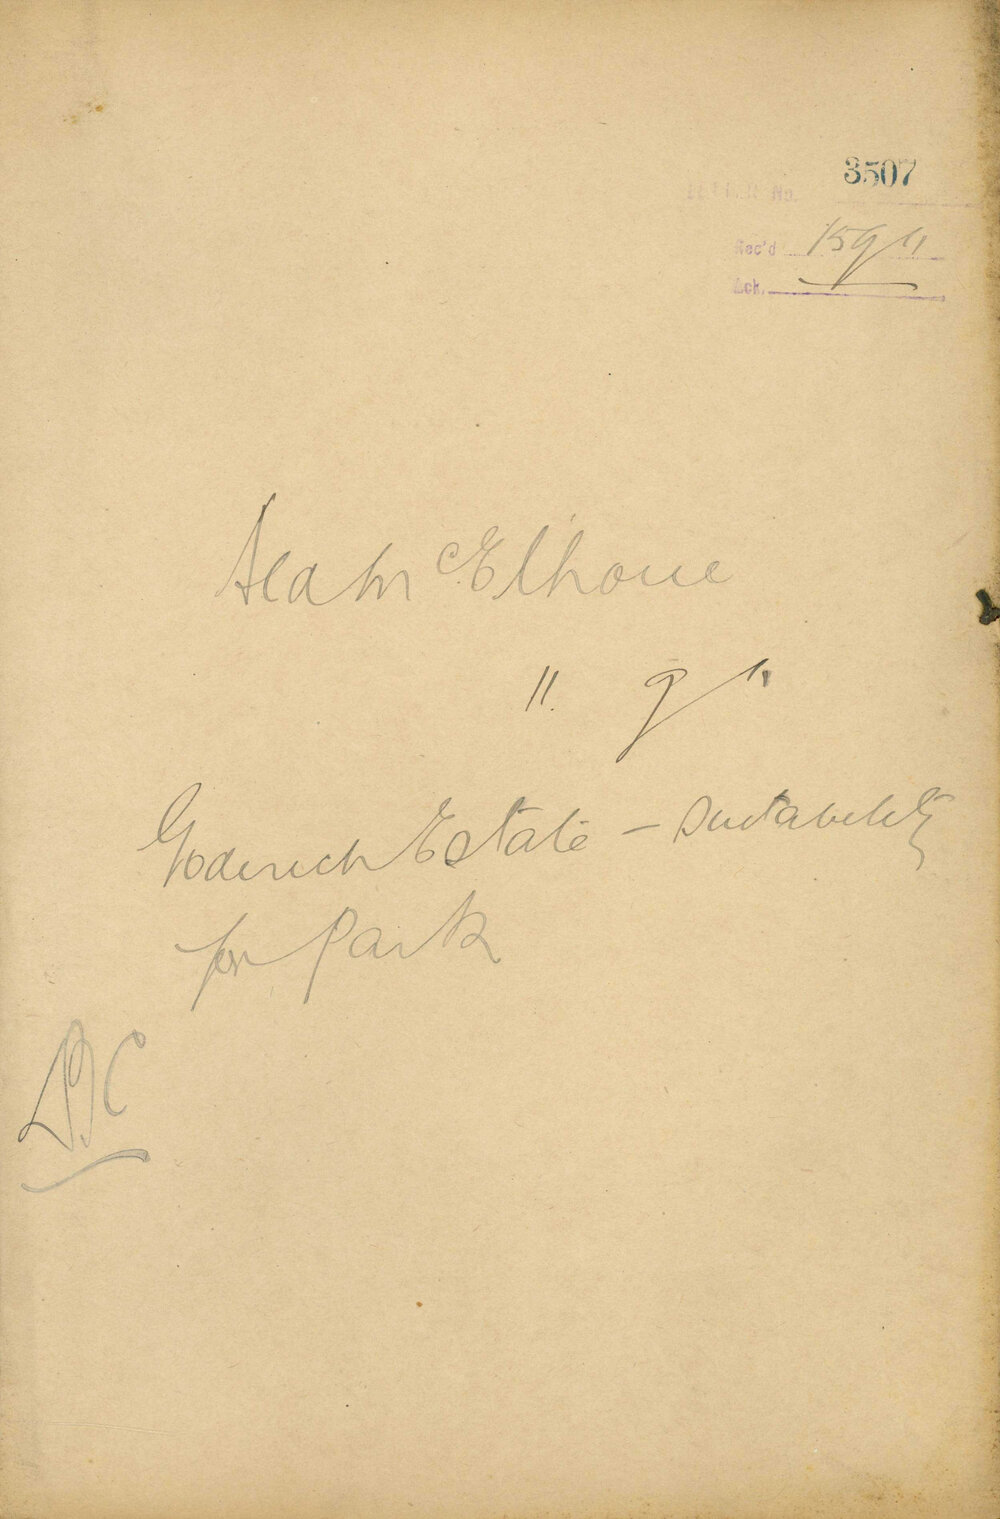 No. 3507
Rec'd 15 9 11
Ack.
Ald McElhone
11. 9 11
Goderich Estate — Suitability
for Park